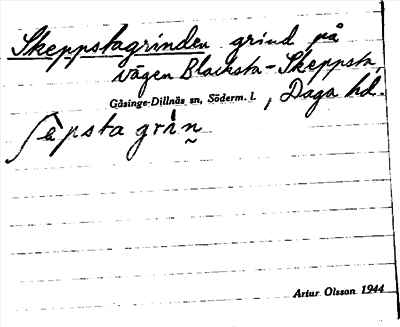 Skeppstagrinden grind på
vägen Blacksta-Skeppsta,
Gåsinge-Dillnäs sn, Söderm. l., Daga hd.
ʃäpsta grìn̰
Artur Olsson 1944